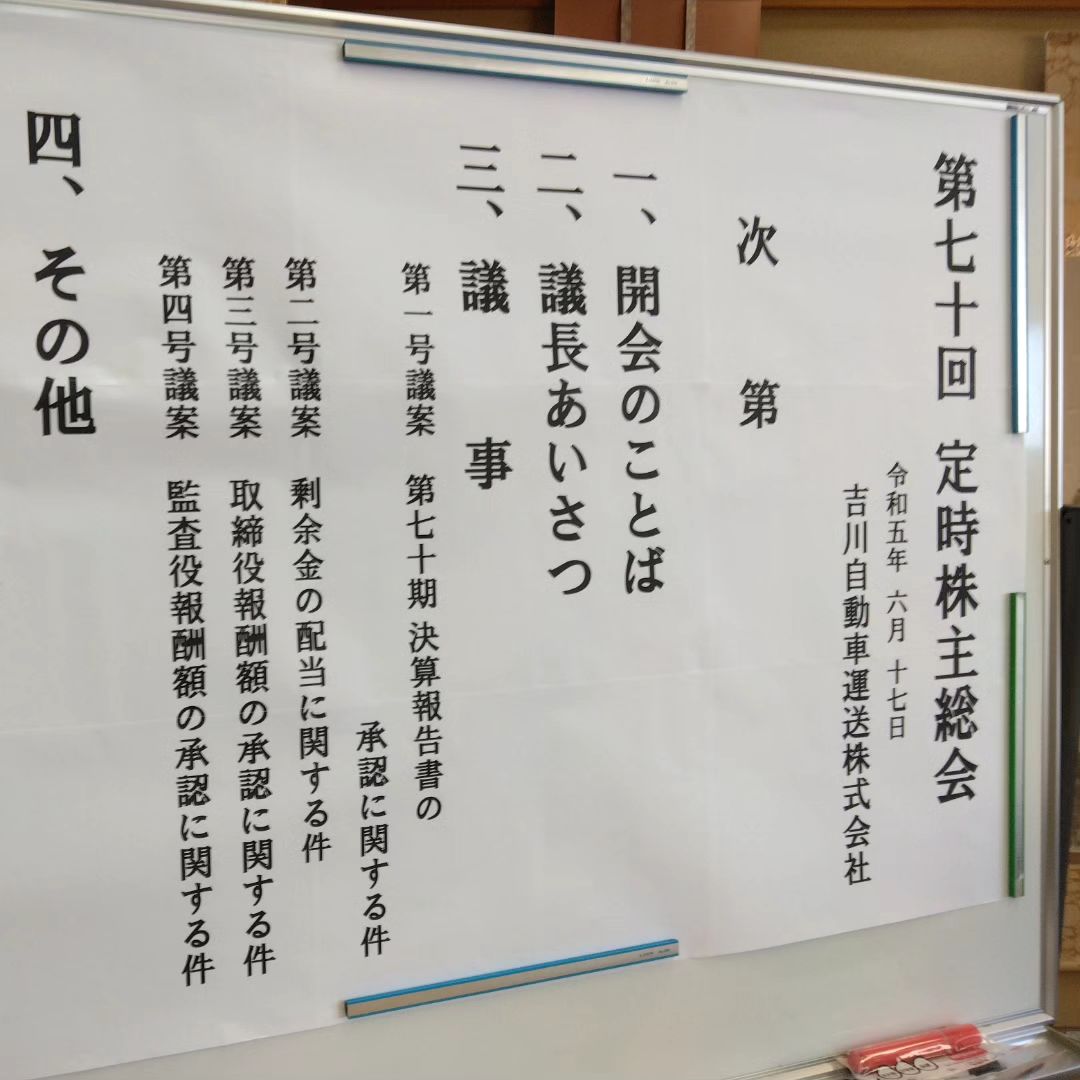 第七十回 定時株主総会
令和五年 六月 十七日
吉川自動車運送株式会社
次 第
一、開会のことば
二、議長あいさつ
三、議 事
第一号議案 第七十期 決算報告書の
承認に関する件
第二号議案 剰余金の配当に関する件
第三号議案 取締役報酬額の承認に関する件
第四号議案 監査役報酬額の承認に関する件
四、その他